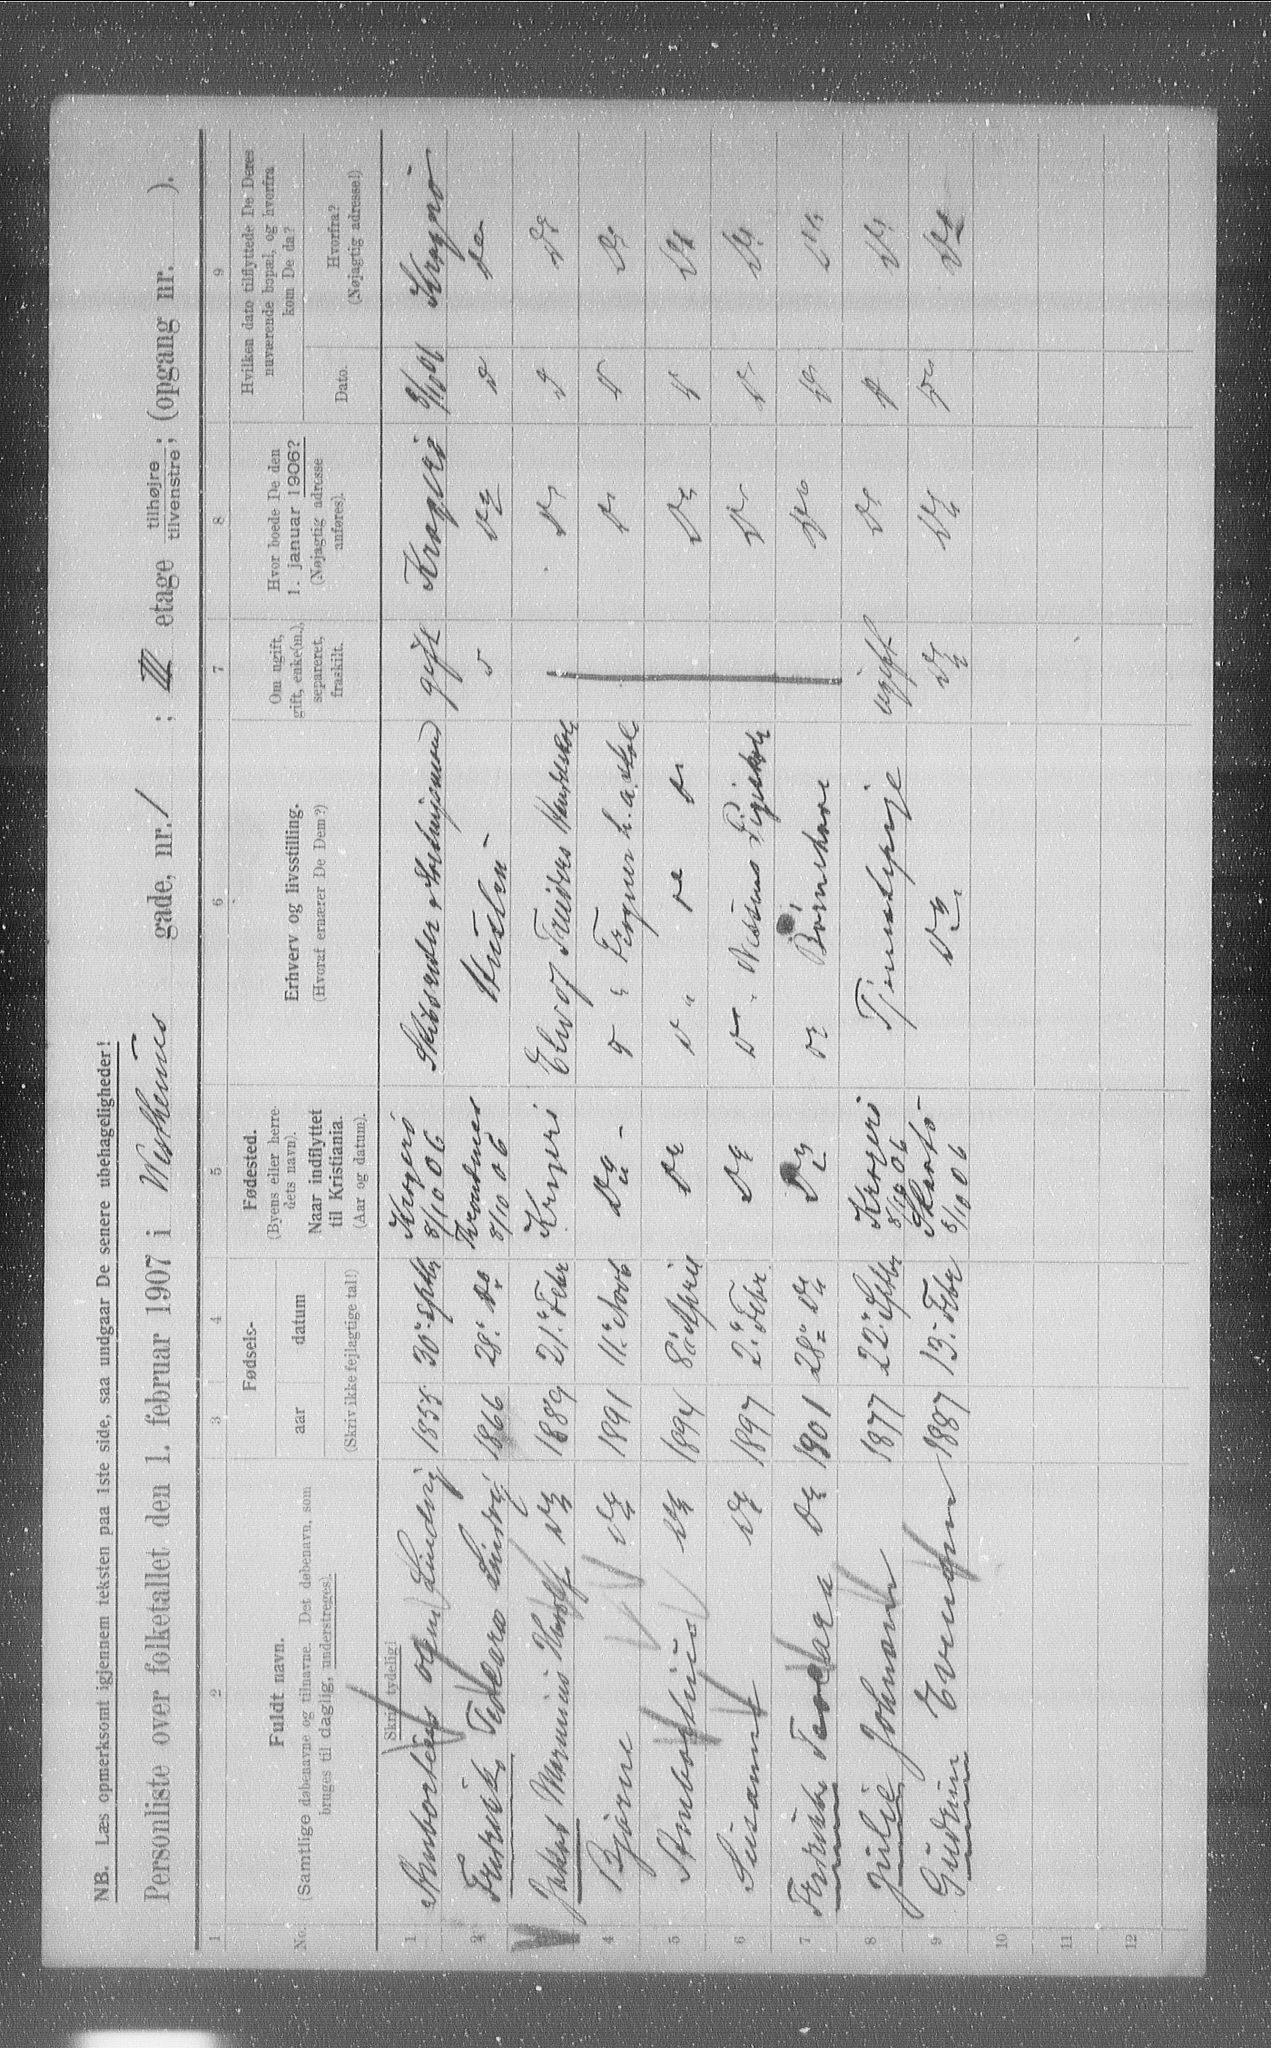 NB. Læs opmerksomt igjennem teksten paa 1ste side, saa undgaar De senere ubehageligheder!
Personliste over folketallet den 1. februar 1907 i Vestheims gade, nr. 1 ; III etage tilhøjre tilvenstre; (opgang nr. ).
1 2 3 4 5 6 7 8 9
No.
Fuldt navn.
(Samtlige døbenavne og tilnavne. Det døbenavn, som
bruges til daglig, understreges).
Skriv tydelig!
Fødsels-
aar datum
(Skriv ikke fejlagtige tal!)
Fødested.
(Byens eller herre-
dets navn).
Naar indflyttet
til Kristiania.
(Aar og datum).
Erhverv og livsstilling.
(Hvoraf ernærer De Dem?)
Om ugift,
gift, enke(m.),
separeret,
fraskilt.
Hvor boede De den
1. januar 1906?
(Nøjagtig adresse
anføres).
Hvilken dato tilflyttede De Deres
nuværende bopæl, og hvorfra
kom De da?
Dato.
Hvorfra?
(Nøjagtig adresse!)
1 Lindvig 1855 30 Septbr Kragerø 8/10 06 Skibsreder gift Kragerø 8/10 06 Kragerø
2 Fredrikke Teodora Lindvig 1866 28. Do 8/10 06 Do Do Do
3 Jakob Marinius Do 1889 21. Febr Kragerø Elev af Do Do Do
4 Bjarne Do 1891 11. Novb Do Do Do Do
5 Do 1894 8. April Do Do Do Do Do Do Do
6 Susanne Do 1897 2. Febr. Do Do Nissens Pigeskole Do Do Do
7 Fredrikke Teodora Do 1901 28 Do Do Do Børnehave Do Do Do
8 Julie Johnsen 1877 22. Septbr Kragerø 8/10 06 Tjenestepige ugift Do Do Do
9 Gudrun Evensen 1887 13. Febr Skaatø 8/10 06 Do Do Do Do Do
10
11
12